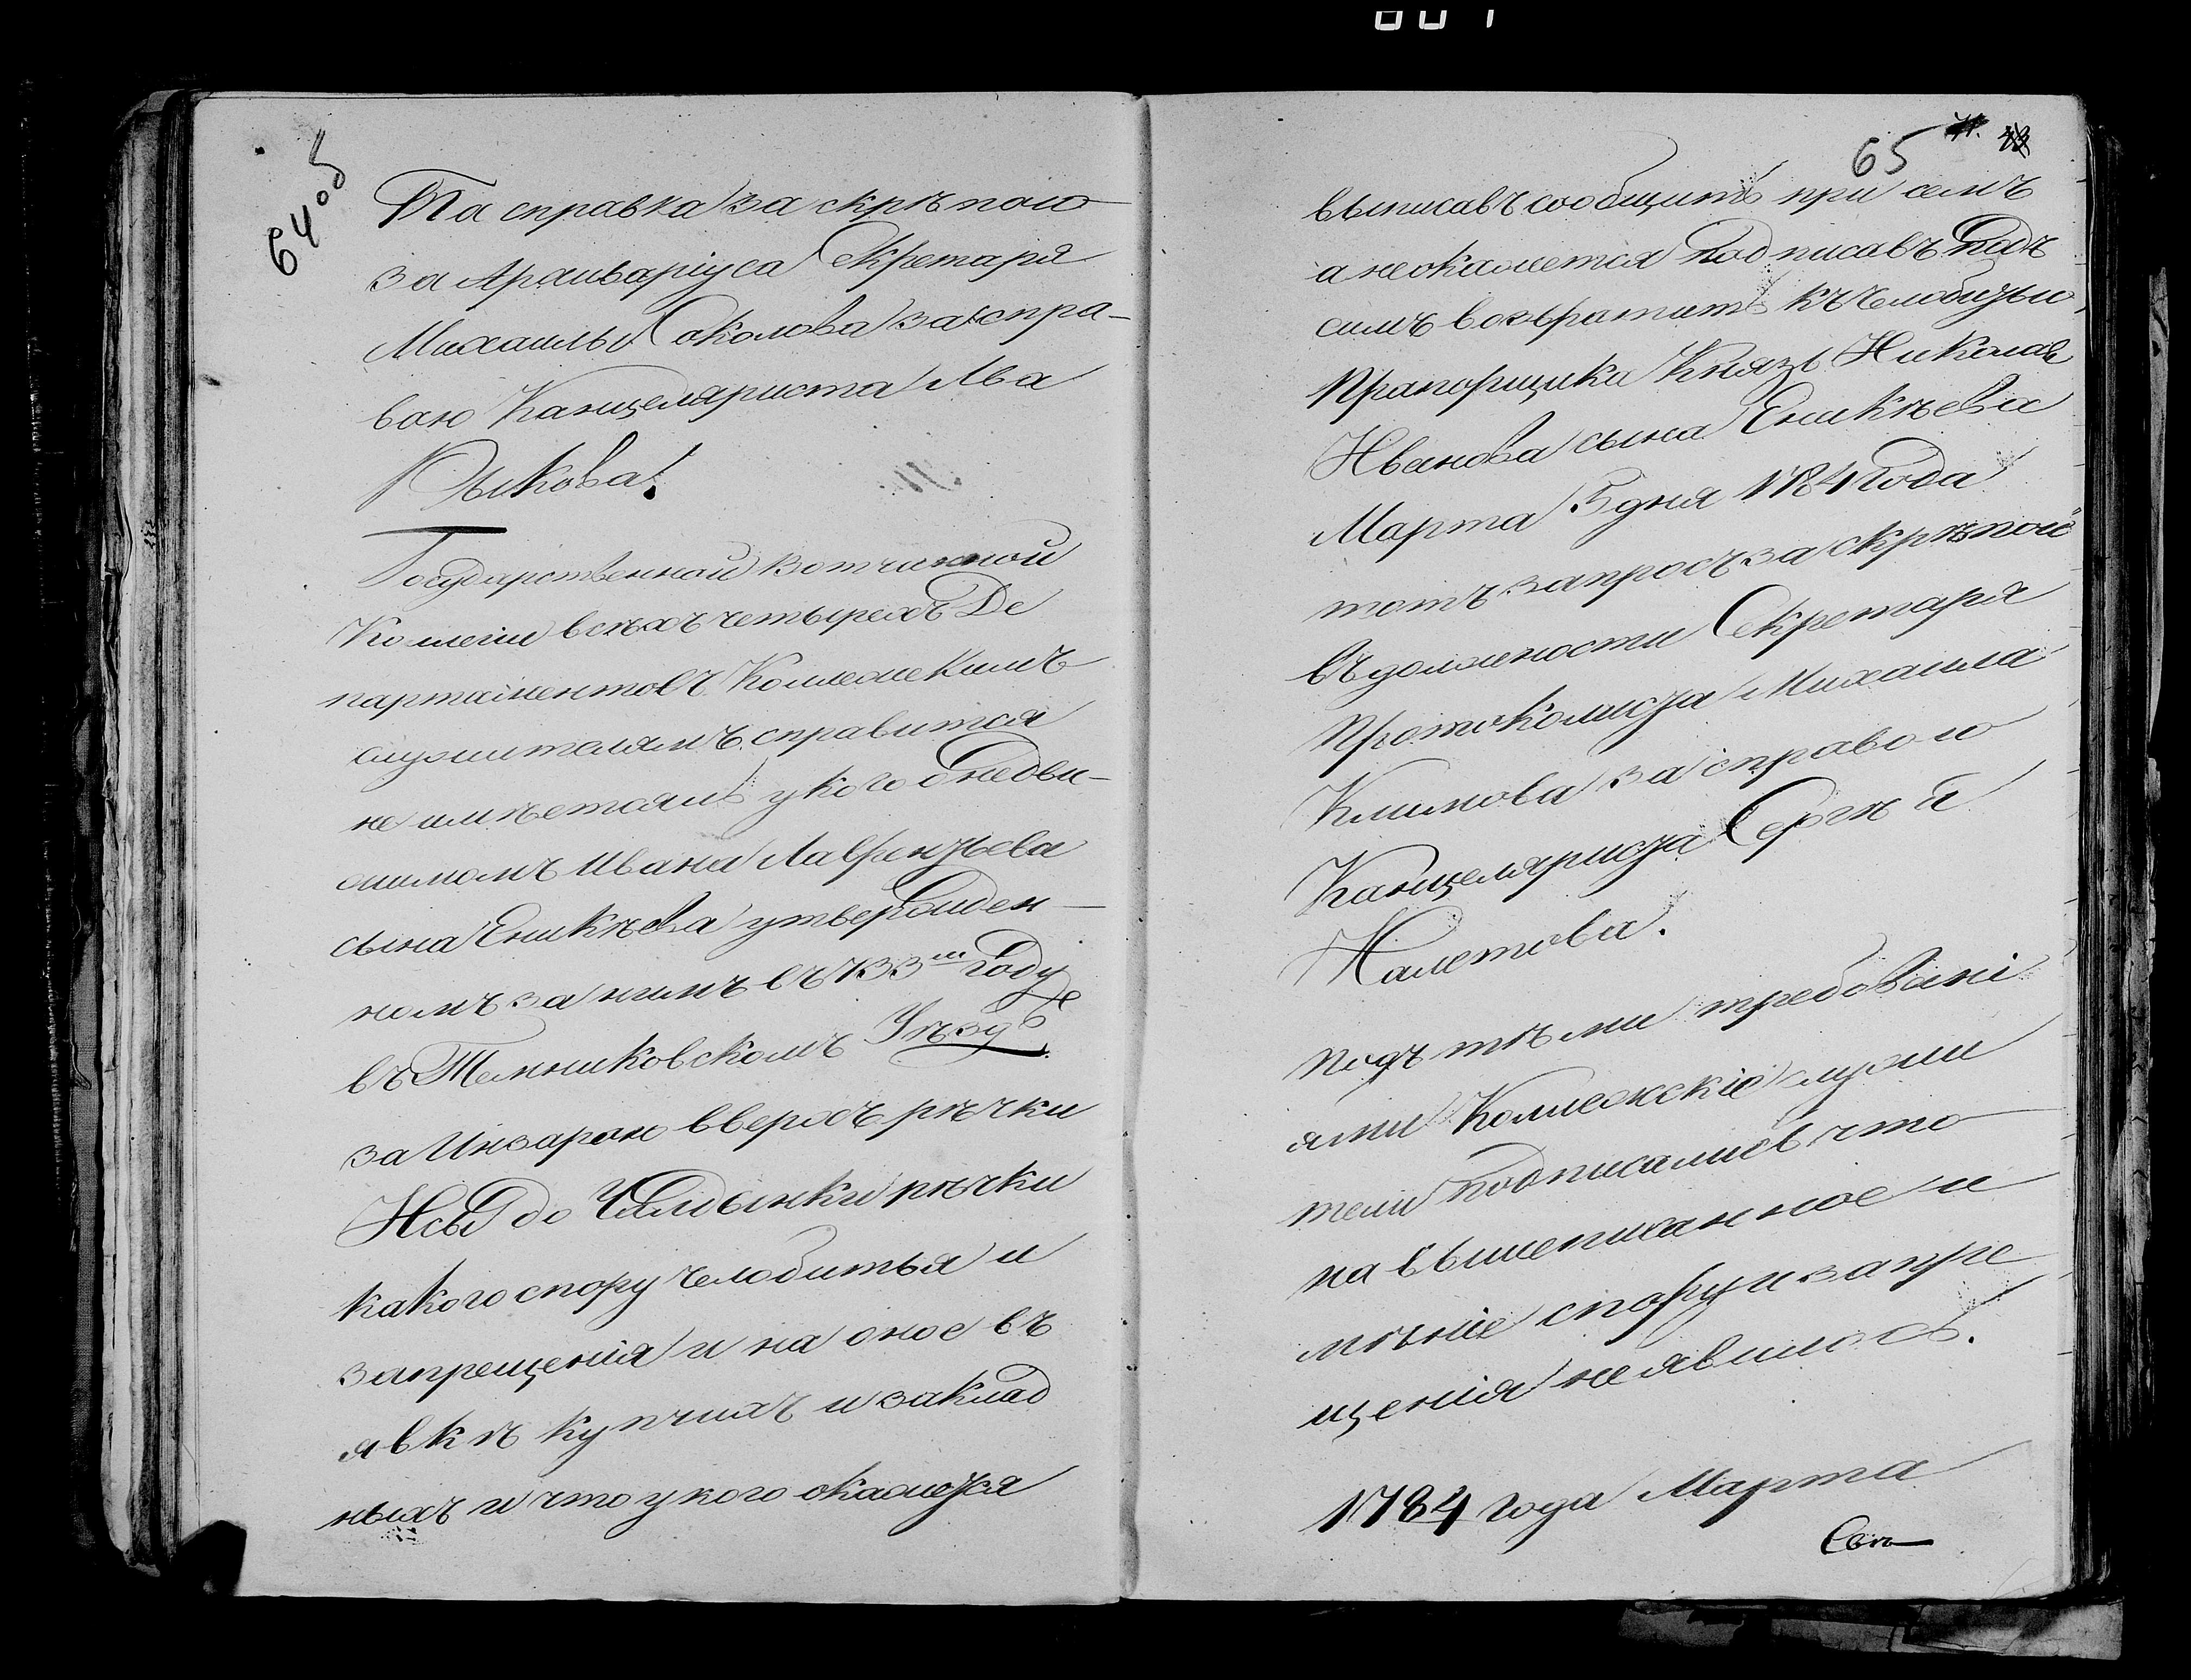 64 об
Та справка за скрѣпою
за Архиваріуса Секретаря
Михаилы Соколова за спра-
вою Канцеляриста Льва
Рыкова.
Государственной вотчинной
Коллегіи всѣхъ четырехъ Де
партаментовъ Коллежскимъ
служителямъ справится
не имѣетсяль у кого о недви-
жимомъ Ивана Лаврентьева
сына Еникѣева утвержден-
номъ за нимъ въ 733м году
въ Темниковскомъ Уѣздѣ
за Инзарою вверхъ рѣчки
Исы до рѣчки
какого спору челобитья и
запрещенія и на оное въ
явкѣ купчихъ и заклад
ныхъ и что у кого окажется
65
выписавъ сообщить при семъ
а неокажется подписавъ подъ
симъ возвратить къ челобитью
Прапорщика Князь Николая
Иванова сына Еникѣева
Марта 5 дня 1784 года
тотъ запросъ за скрѣпой
въ должности Секретаря
Протоколиста Михаила
Климова за справою
Канцеляриста Сергѣя
Налетова.
подъ тѣми требовані
ями Коллежскіе служи
тели подписались что
на вышеписанное и
мѣніе спору и запре
щенія не явилось.
1784 года Марта